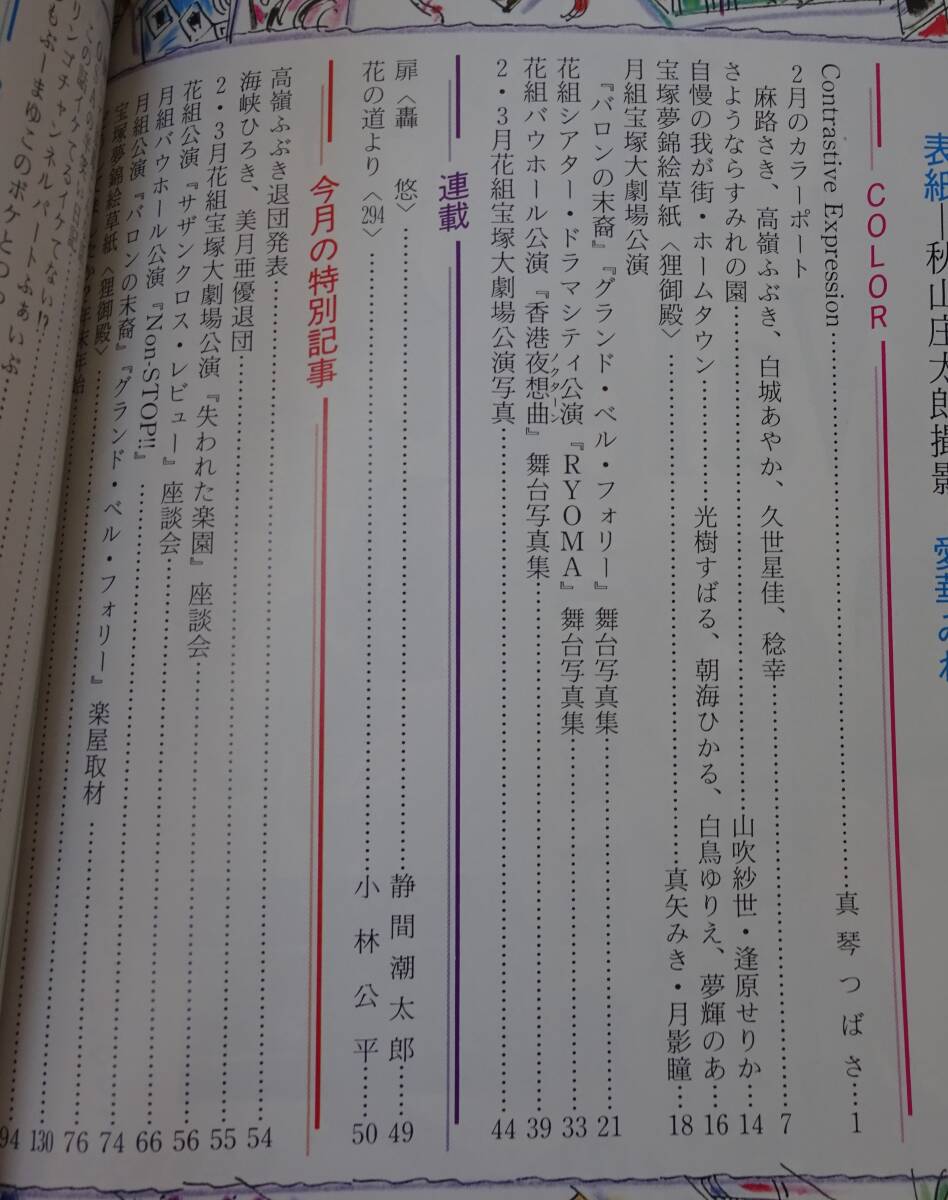 表紙＝秋山庄太郎撮影　愛華みれ
COLOR
Contrastive Expression……真琴つばさ…1
2月のカラーポート
麻路さき、高嶺ふぶき、白城あやか、久世星佳、稔幸……7
さようならすみれの園……山吹紗世・逢原せりか…14
自慢の我が街・ホームタウン……光樹すばる、朝海ひかる、白鳥ゆりえ、夢輝のあ…16
宝塚夢錦絵草紙〈狸御殿〉……真矢みき・月影瞳…18
月組宝塚大劇場公演
『バロンの末裔』『グランド・ベル・フォリー』舞台写真集……21
花組シアター・ドラマシティ公演『RYOMA』舞台写真集……33
花組バウホール公演『香港夜想曲（ノクターン）』舞台写真集……39
2・3月花組宝塚大劇場公演写真……44
連載
扉〈轟　悠〉……静間潮太郎…49
花の道より〈294〉……小林公平…50
今月の特別記事
高嶺ふぶき退団発表……54
海峡ひろき、美月亜優退団……55
2・3月花組宝塚大劇場公演『失われた楽園』座談会……56
花組公演『サザンクロス・レビュー』座談会……66
月組バウホール公演『Non-STOP!!』……74
月組公演『バロンの末裔』『グランド・ベル・フォリー』楽屋取材……76
宝塚夢錦絵草紙〈狸御殿〉……130
年末年始……94
イケてない!?
リンゴチャンネルパートふぁいぶ
もぶーまゆこのポケとつっ